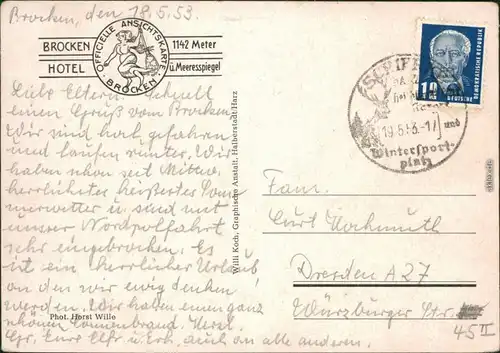 Brocken, den 18.5.53.
BROCKEN
HOTEL
OFFICIELLE ANSICHTSKARTE
BROCKEN
1142 Meter
ü. Meeresspiegel
Liebe Eltern! Schnell
einen Gruß vom Brocken.
Wir sind hoch gefahren
und laufen runter. Wir
haben schon seit Mittw.
herrlichstes heißestes Som
merwetter u. sind mit
unser Nordpolfahrt
sehr eingebrochen. Es
ist ein herrlicher Urlaub,
an den wir ewig denken
werden. Wir haben einen ganz
schönen Sonnenbrand. Herzl.
Gr. Eure u. auch an alle anderen.
Phot. Horst Wille
Willi Koch, Graphische Anstalt, Halberstadt Harz
SCHIERKE
19.5.53.-17
und
Wintersport-
platz
DEUTSCHE
DEMOKRATISCHE REPUBLIK
Fam.
Curt Hochmuth
Dresden A 27
Würzburger Str.
45 II